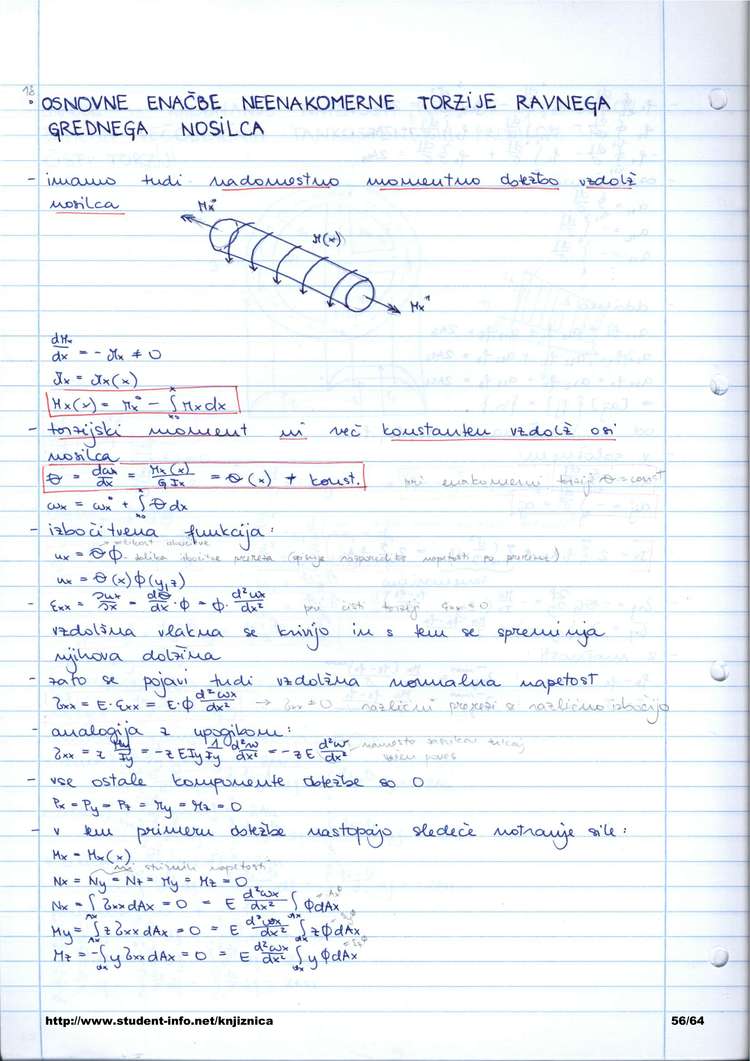 18.
OSNOVNE ENAČBE NEENAKOMERNE TORZIJE RAVNEGA
GREDNEGA NOSILCA
- imamo tudi nadomestno momentno obtežbo vzdolž
nosilca
Mx*
M(x)
Mx*
dMx/dx = -Mx ≠ 0
Mx = Mx(x)
Mx(x) = Mx° - ∫ Mx dx
- torzijski moment ni več konstanten vzdolž osi
nosilca
Θ = dωx/dx = Mx(x)/G Ix = Θ(x) ≠ konst.
pri enakomerni torziji Θ = const
ωx = ωx° + ∫ Θ dx
- izbočitvena funkcija:
ux = Θ ϕ
ux = Θ(x) ϕ(y,z)
- εxx = ∂ux/∂x = dΘ/dx · ϕ = ϕ · d²ωx/dx²
pri čisti torziji εxx = 0
vzdolžna vlakna se krivijo in s tem se spreminja
njihova dolžina
- zato se pojavi tudi vzdolžna normalna napetost
σxx = E · εxx = E · ϕ d²ωx/dx² → σxx ≠ 0 različni prerezi se različno izbočijo
- analogija z upogibom:
σxx = z My/Iy = -z E Iy 1/Iy d²w/dx² = -z E d²w/dx²
- vse ostale komponente obtežbe so 0
Px = Py = Pz = My = Mz = 0
- v tem primeru obtežbe nastopajo sledeče notranje sile:
Mx = Mx(x)
ni strižnih napetosti
Nx = Ny = Nz = My = Mz = 0
Nx = ∫ σxx dAx = 0 = E d²ωx/dx² ∫ ϕ dAx
My = ∫ z σxx dAx = 0 = E d²ωx/dx² ∫ z ϕ dAx
Mz = -∫ y σxx dAx = 0 = E d²ωx/dx² ∫ y ϕ dAx
http://www.student-info.net/knjiznica
56/64